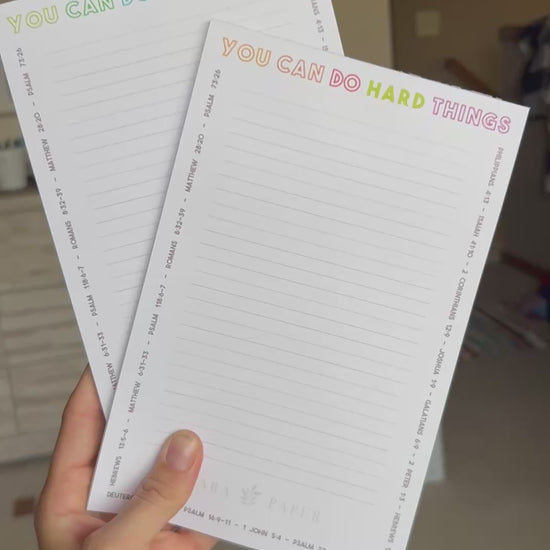 YOU CAN DO
PSALM 73:26
MATTHEW 28:20 - PSALM 73:26
ROMANS 8:32-39 -
PSALM 118:6-7 -
6:31-33 -
YOU CAN DO HARD THINGS
HEBREWS 13:5-6 - MATTHEW 6:31-33 - PSALM 118:6-7 - ROMANS 8:32-39 - MATTHEW 28:20 - PSALM 73:26
PHILIPPIANS 4:13 - ISAIAH 41:10 - 2 CORINTHIANS 12:9 - JOSHUA 1:9 - GALATIANS 6:9 - 2 PETER 1:3 - HEBREWS
PAPER
PSALM 16:9-11 - 1 JOHN 5:4 - PSALM